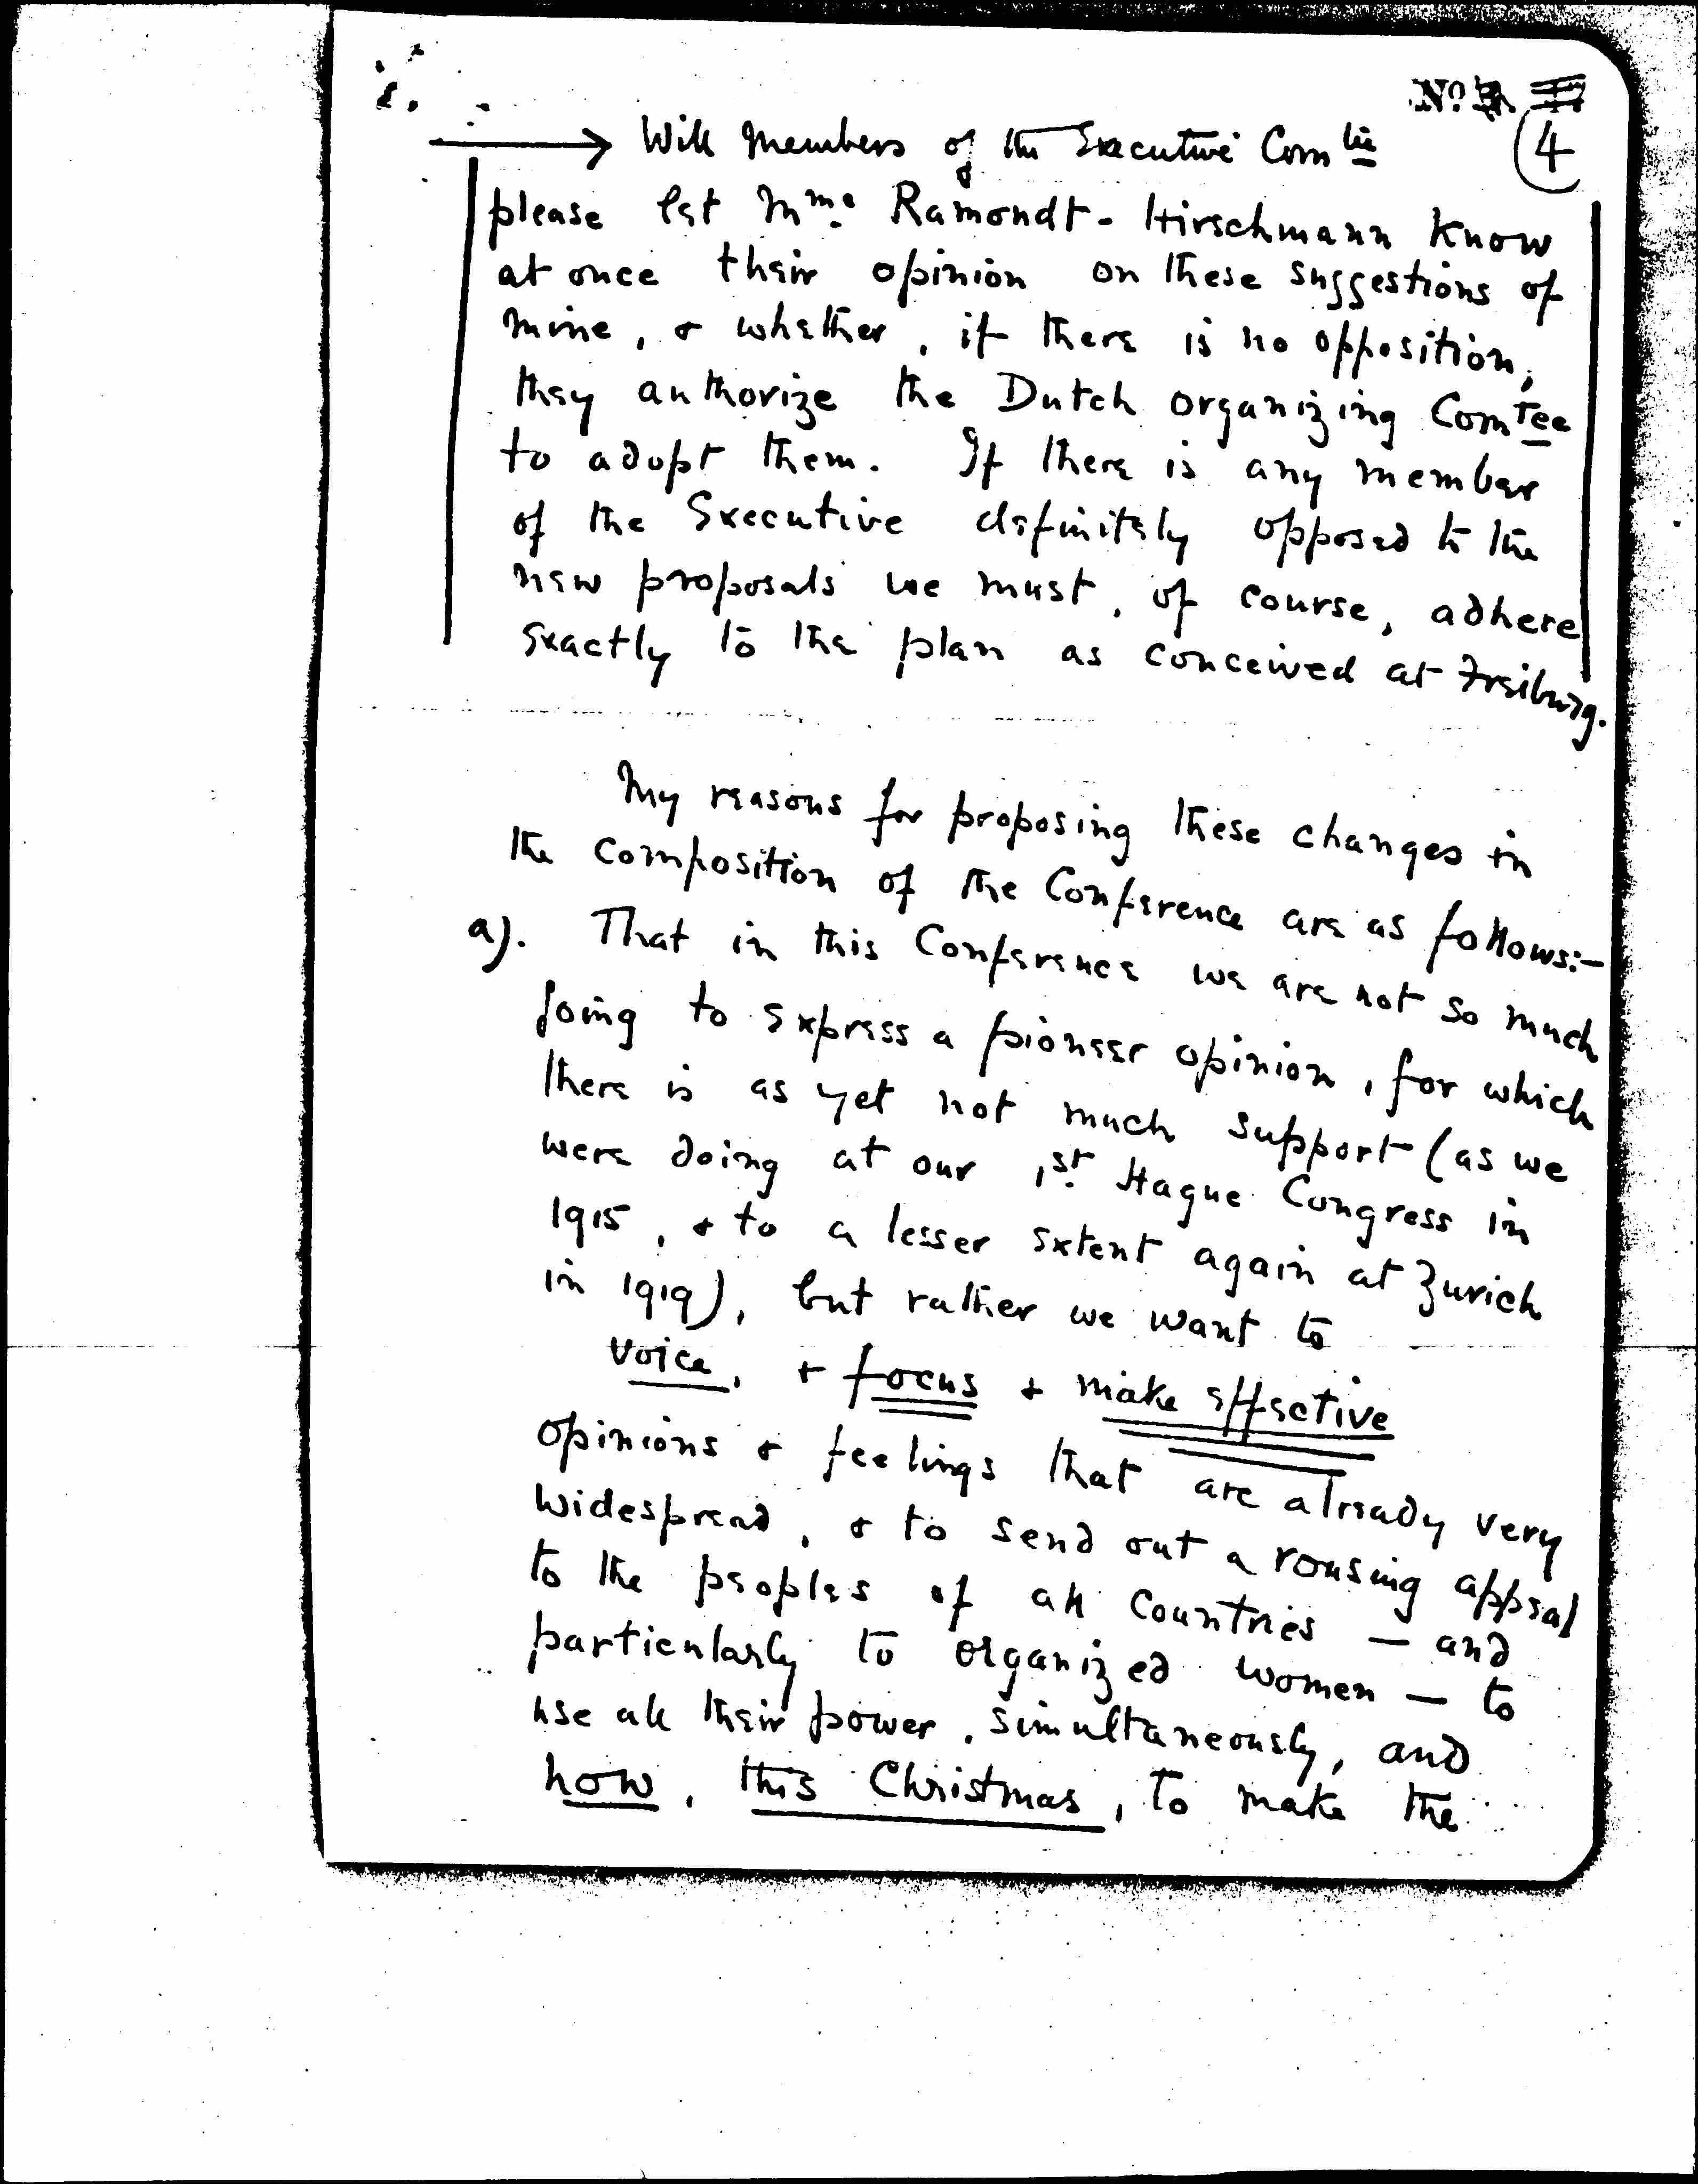 No.
4
Will Members of the Executive Comtee
please let Mme. Ramondt-Hirschmann know
at once their opinion on these suggestions of
mine, & whether, if there is no opposition,
they authorize the Dutch organizing Comtee
to adopt them. If there is any member
of the Executive definitely opposed to the
new proposals we must, of course, adhere
exactly to the plan as conceived at Freiburg.
My reasons for proposing these changes in
the composition of the Conference are as follows:-
a). That in this Conference we are not so much
going to express a pioneer opinion, for which
there is as yet not much support (as we
were doing at our 1st. Hague Congress in
1915, & to a lesser extent again at Zurich
in 1919), but rather we want to
voice, + focus + make effective
opinions & feelings that are already very
widespread, & to send out a rousing appeal
to the peoples of all countries — and
particularly to organized women — to
use all their power, simultaneously, and
now, this Christmas, to make the